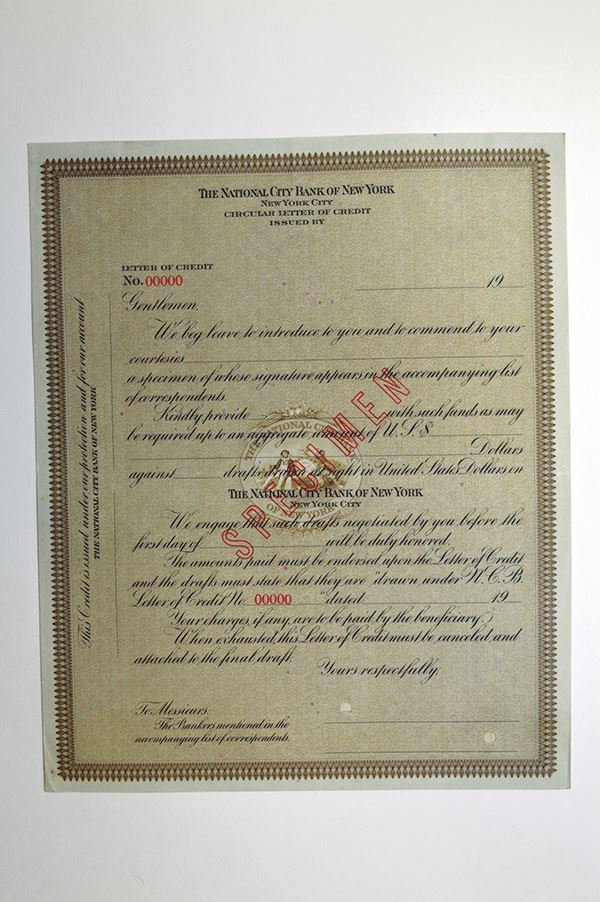 THE NATIONAL CITY BANK OF NEW YORK
NEW YORK CITY
CIRCULAR LETTER OF CREDIT
ISSUED BY
LETTER OF CREDIT
No. 00000
19
Gentlemen,
We beg leave to introduce to you and to commend to your
courtesies
a specimen of whose signature appears in the accompanying list
of correspondents.
Kindly provide with such funds as may
be required up to an aggregate amount of U.S.$
Dollars
against drafts drawn at sight in United States Dollars on
THE NATIONAL CITY BANK OF NEW YORK
NEW YORK CITY
We engage that such drafts negotiated by you before the
first day of will be duly honored.
The amounts paid must be endorsed upon the Letter of Credit
and the drafts must state that they are "drawn under N.C.B.
Letter of Credit No. 00000 " dated 19
Your charges, if any, are to be paid by the beneficiary.
When exhausted, this Letter of Credit must be canceled and
attached to the final draft.
Yours respectfully,
To Messieurs:
The Bankers mentioned in the
accompanying list of correspondents.
This Credit is issued under our protection and for our account
THE NATIONAL CITY BANK OF NEW YORK
SPECIMEN
THE NATIONAL CITY
OF NEW YORK